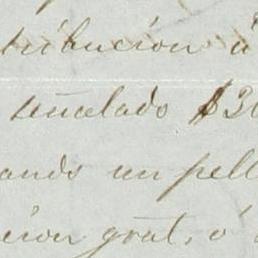 tribucion á
señalado $30
ando un pell
cion grat, ó